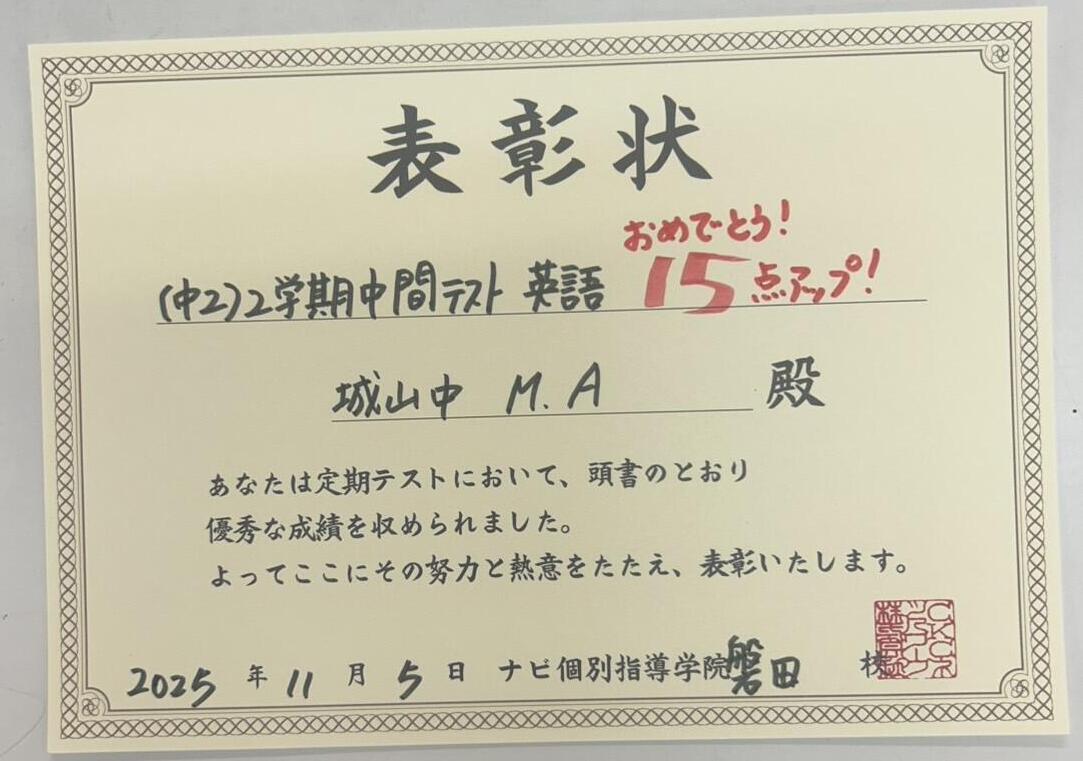 表彰状
おめでとう!
(中2)2学期中間テスト 英語 15点アップ!
城山中 M.A 殿
あなたは定期テストにおいて、頭書のとおり
優秀な成績を収められました。
よってここにその努力と熱意をたたえ、表彰いたします。
2025年11月5日 ナビ個別指導学院 磐田 校